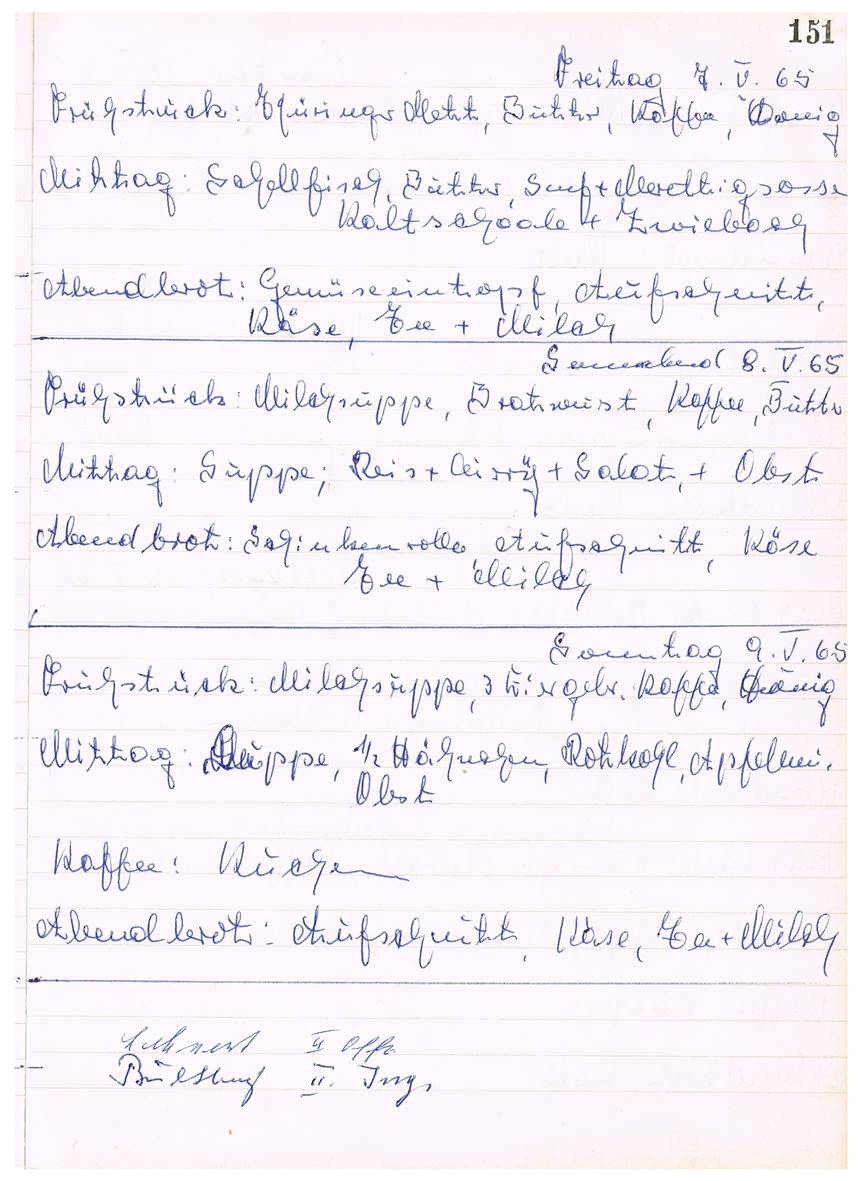 151
Freitag 7. V. 65
Frühstück: Thüringer Mett, Butter, Kaffee, Honig
Mittag: Schellfisch, Butter, Senf + Merettigsosse
Kaltschaale + Zwieback
Abendbrot: Gemüseeintopf, Aufschnitt,
Käse, Tee + Milch
Sonnabend 8. V. 65
Frühstück: Milchsuppe, Bratwurst, Kaffee, Butter
Mittag: Suppe; Reis + Curry + Salat, + Obst
Abendbrot: Schinkenrolle Aufschnitt, Käse
Tee + Milch
Sonntag 9. V. 65
Frühstück: Milchsuppe, 3 Kaffe, Honig
Mittag: Suppe, 1/2 Hähnchen, Rotkohl, Apfelmu.
Obst
Kaffee: Kuchen
Abendbrot: Aufschnitt, Käse, Tee + Milch
II Offz
II. Ing.